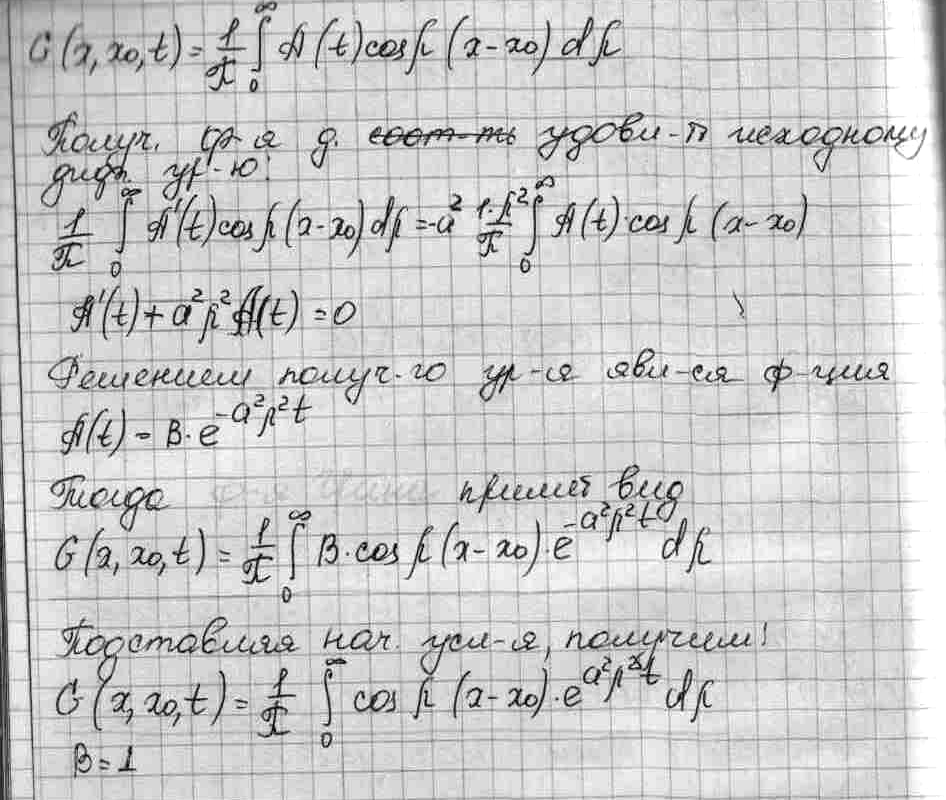 G(x, x₀, t) = 1/π ∫₀^∞ A(t) cos p (x-x₀) dp
Получ. ф-я д. соот-ть удовл-ть исходному
дифф. ур-ю:
1/π ∫₀^∞ A'(t) cos p (x-x₀) dp = -a² 1·p²/π ∫₀^∞ A(t)·cos p (x-x₀)
A'(t) + a²p² A(t) = 0
Решением получ-го ур-я явл-ся ф-ция
A(t) = B·e^(-a²p²t)
Тогда ф-я примет вид
G(x, x₀, t) = 1/π ∫₀^∞ B·cos p (x-x₀)·e^(-a²p²t) dp
Подставляя нач. усл-я, получим:
G(x, x₀, t) = 1/π ∫₀^∞ cos p (x-x₀)·e^(a²p²t) dp
B = 1